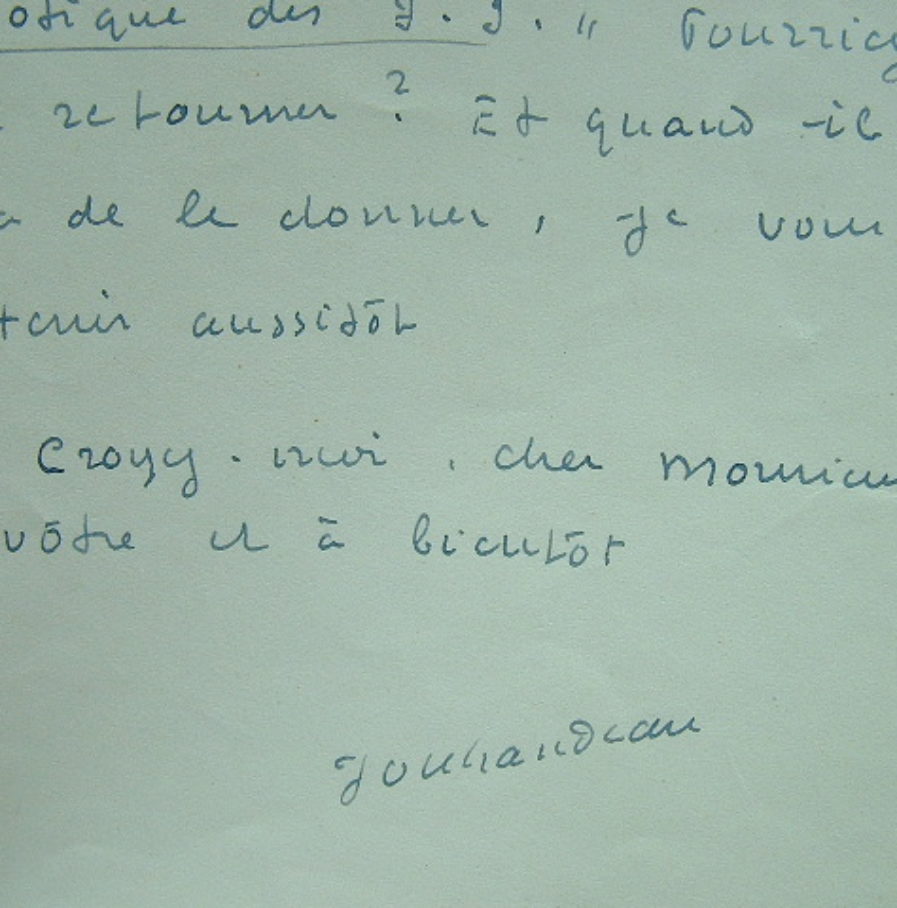 otique des J. J. " Pourriez
retourner ? Et quand il
a de le donner, je vous
tenir aussitôt
Croyez-moi, cher Monsieu
vôtre et à bientôt
Jouhandeau